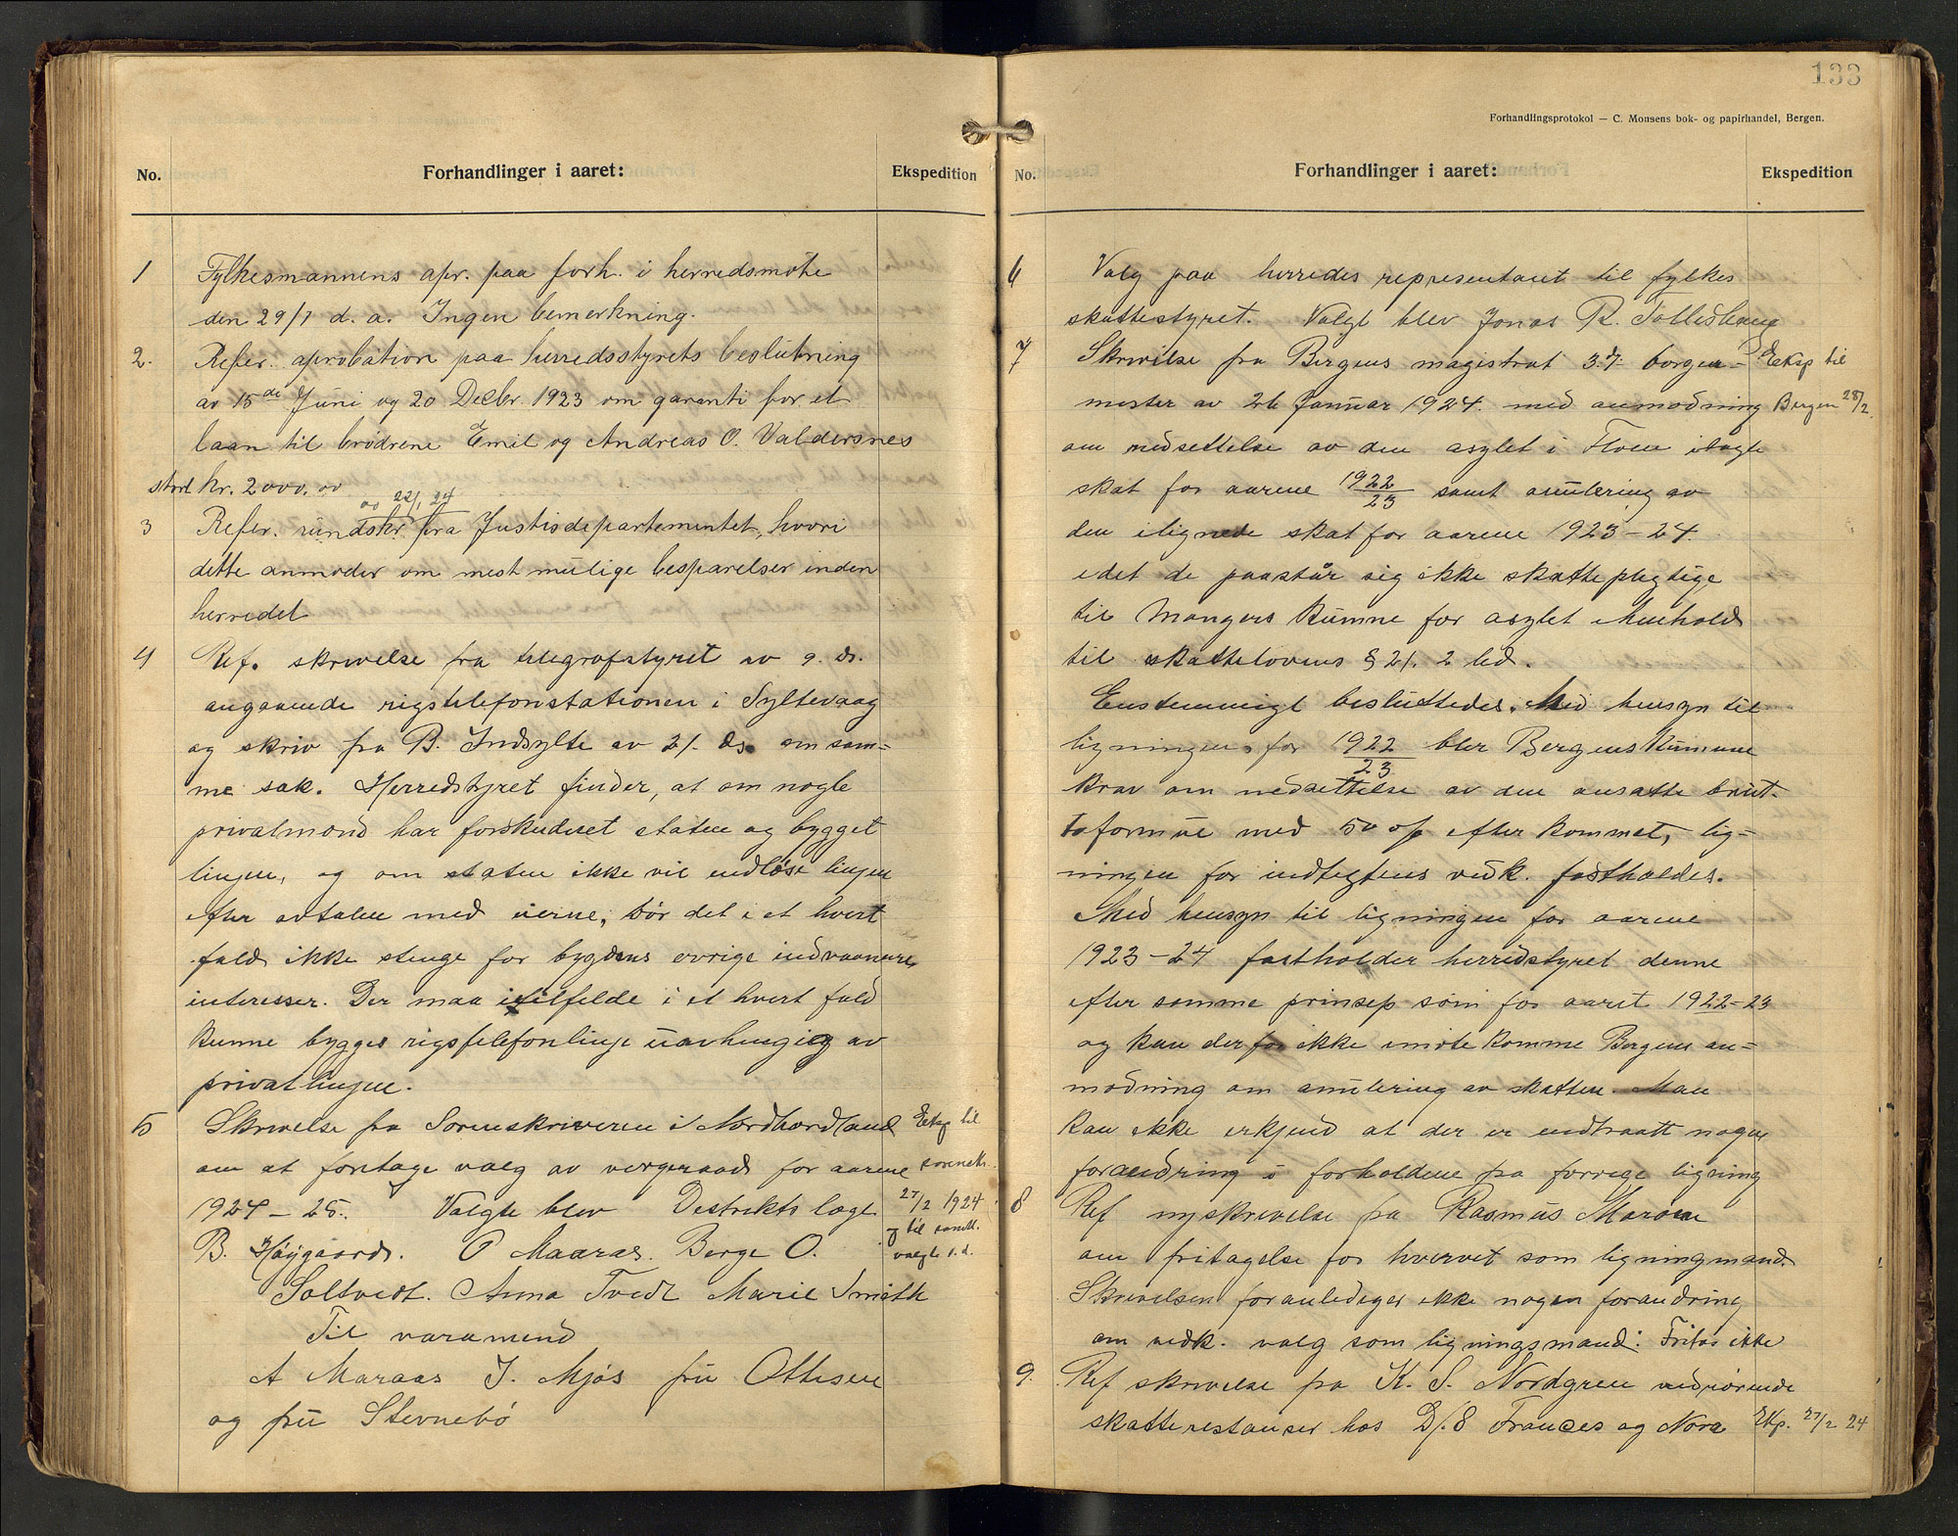 No.
Forhandlinger i aaret:
Ekspedition
1 Fylkesmannens apr. paa forh. i herredsmøte
den 29/1 d. a. Ingen bemerkning.
2. Refer. aprobation paa herredsstyrets beslutning
av 15de Juni og 20 Decbr. 1923 om garanti for et
laan til brødrene Emil og Andreas O. Valdersnes
stort kr. 2000.00
av 22/1 24
3 Refer. rundskr fra Justisdepartementet, hvori
dette anmoder om mest mulige besparelser inden
herredet
4 Ref. skrivelse fra telegrafstyret av 9. ds.
angaaende rigstelefonstationen i Syltevaag
og skriv fra B. Indsylte av 21. ds. om sam-
me sak. Herredstyret finder, at om nogle
privatmænd har forskuderet staten og bygget
linjen, og om staten ikke vil indløse linjen
efter avtalen med eierne, bør det i et hvert
fald ikke stenge for bygdens øvrige indvaaneres
interesser. Der maa i tilfelde i et hvert fald
kunne bygges rigstelefonlinje uavhengig av
privatlinjen.
5 Skrivelse fra Sorenskriveren i Nordhordland
Eksp til
om at foretage valg av vergeraad for aarene
sorensk.
1924 – 25. Valgte blev Destrikts læge
27/2 1924
og til samtl.
B. Høygaard. P Maaras. Berge O.
valgte s.d.
Soltvedt. Anna Tvedt Marie Smith
Til varamend
A Maraas J. Mjøs fru Ottesen
og fru Stevnebø
133
Forhandlingsprotokol — C. Monsens bok- og papirhandel, Bergen.
No.
Forhandlinger i aaret:
Ekspedition
6 Valg paa herredes representant til fylkes
skattestyret. Valgt blev Jonas R. Tolleshaug
7 Skrivelse fra Bergens magistrat 3. borger-
Eksp til
mester av 26 Januar 1924. med anmodning
Bergen 28/2.
om nedsettelse av den asylet i Floen ilagte
skat for aarene 1922/23 samt anulering av
den ilignede skat for aarene 1923 – 24.
idet de paastår sig ikke skattepligtige
til Mangers Kumne for asylet i henhold
til skattelovens § 21. 2 led.
Enstemmigt besluttedes. Med hensyn til
ligningen for 1922/23 blir Bergens Kumune
krav om nedsettelse av den ansatte brut-
toformue med 50 o/o efter kommet, lig-
ningen for indtegtens vedk. fastholdes.
Med hensyn til ligningen for aarene
1923 – 24 fastholder herredstyret denne
efter samme prinsep som for aaret 1922–23
og kan derfor ikke imøte komme Bergens an-
modning om anulering av skatten. Man
kan ikke erkjend at der er indtraatt nogen
forandring i forholdene fra forrige ligning
8 Ref ny skrivelse fra Rasmus Maraas
om fritagelse for hvervet som ligningmand.
Skrivelsen foranlediger ikke nogen forandring
om vedk. valg som ligningsmand: Fritas ikke
9. Ref skrivelse fra K. S. Nordgren vedrørende
skatterestanser hos D/S Frances og Nora
Eksp. 27/2 24